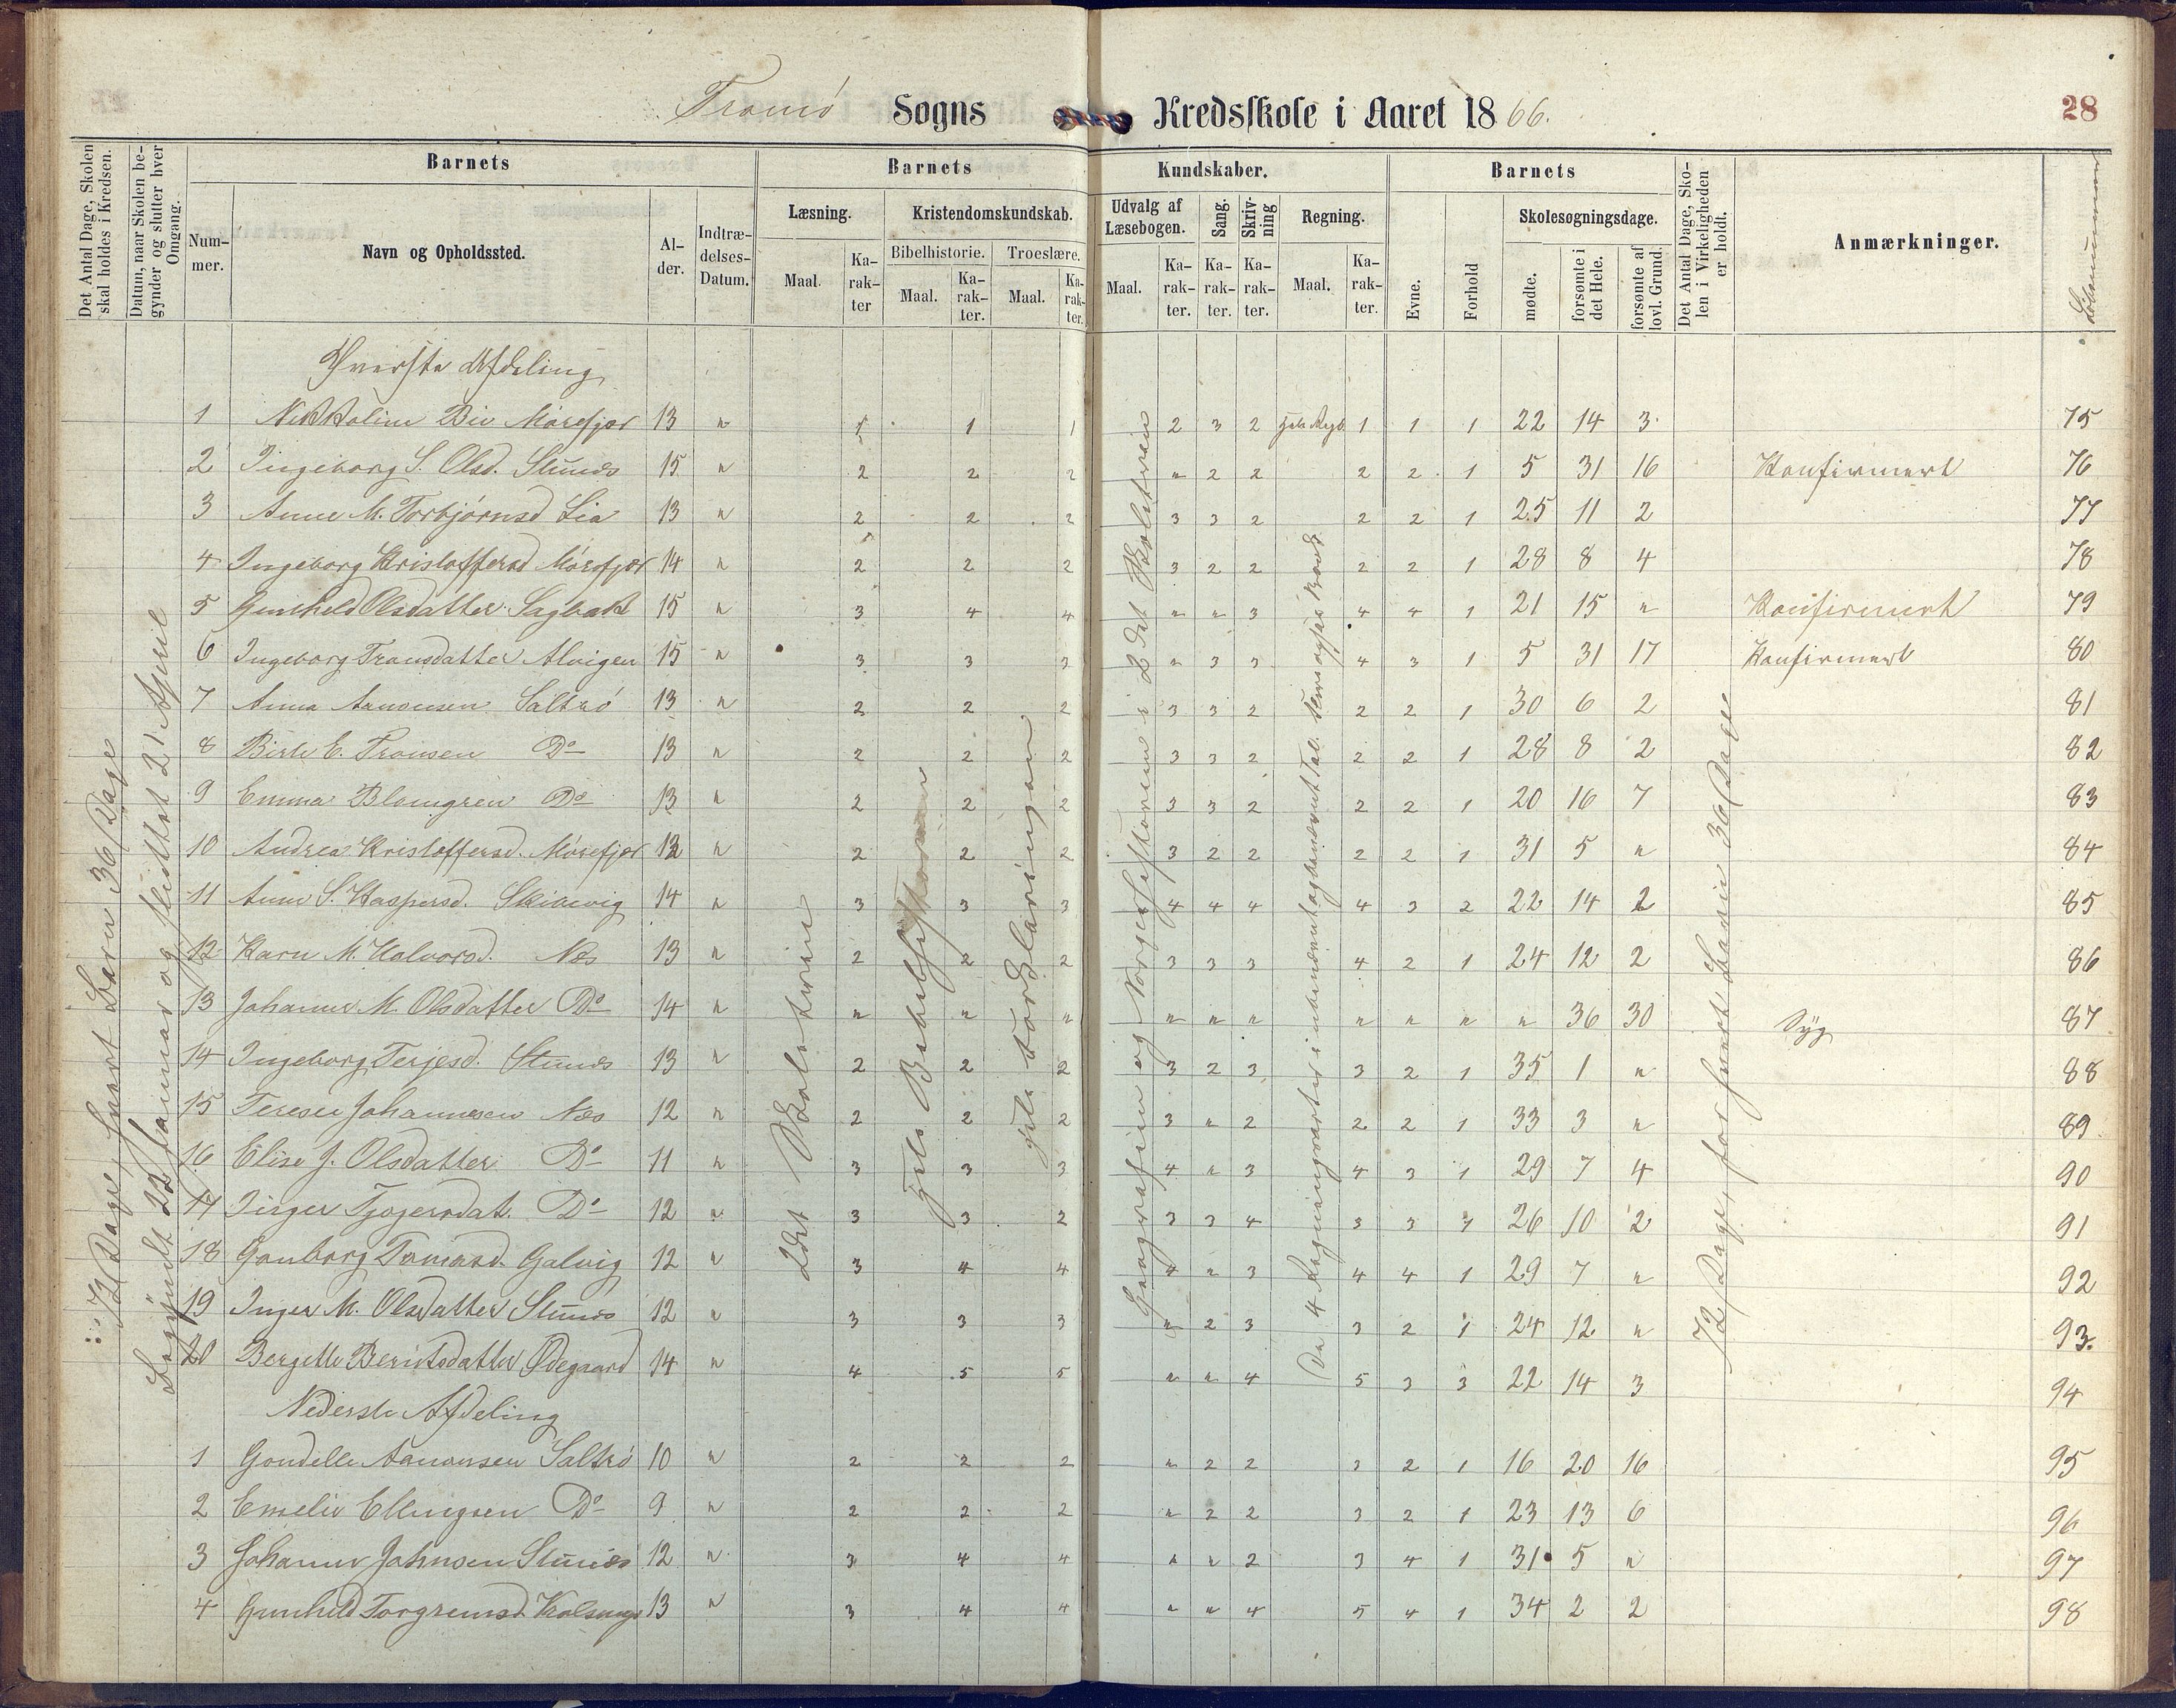 Tromö Sogns Kredsskole i Aaret 1866. 28
Det Antal Dage, Skolen skal holdes i Kredsen.
Datum, naar Skolen begynder og slutter hver Omgang.
Barnets
Nummer.
Navn og Opholdssted.
Alder.
Indtrædelses-Datum.
Barnets Kundskaber.
Læsning.
Maal.
Karakter
Kristendomskundskab.
Bibelhistorie.
Maal.
Karakter.
Troeslære.
Maal.
Karakter.
Udvalg af Læsebogen.
Maal.
Karakter.
Sang.
Karakter.
Skrivning
Karakter.
Regning.
Maal.
Karakter.
Barnets
Evne.
Forhold
Skolesøgningsdage.
mødte.
forsømte i det Hele.
forsømte af lovl. Grund.
Det Antal Dage, Skolen i Virkeligheden er holdt.
Anmærkninger.
Löbenummer
72 Dage, hvert Barn 36 Dage
Begyndt 22 Januar og sluttet 21 April
2det Skoletrin
hele Bibelhistorien
hele Forklaringen
Geografien og Norgeshistorien i 2det Skoletrin
De 4 Regningsarter
72 Dage, for hvert Barn 36 Dage
Øverste Afdeling
1 Nikoline Bie Mörefjær 13 " 1 1 1 2 3 2 1 1 1 22 14 3 75
2 Ingeborg S. Olsd. Stuenes 15 " 2 2 2 " 2 2 2 2 1 5 31 16 Konfirmert 76
3 Anne M. Torbjörnsd Lia 13 " 2 2 2 3 3 2 2 2 1 25 11 2 77
4 Ingeborg Kristoffersd Mörefjær 14 " 2 2 2 3 2 2 2 2 1 28 8 4 78
5 Gunhild Olsdatter Sagbak 15 " 3 4 4 " " 3 4 4 1 21 15 " Konfirmert 79
6 Ingeborg Tronsdatter Alvigen 15 " 3 3 3 " 3 3 4 3 1 5 31 17 Konfirmert 80
7 Anna Aanonsen Saltrö 13 " 2 2 2 3 3 2 2 2 1 30 6 2 81
8 Birte E. Tronsen Do 13 " 2 2 2 3 3 2 2 2 1 28 8 2 82
9 Emma Blomgren Do 13 " 2 2 2 3 3 2 2 2 1 20 16 7 83
10 Andrea Kristoffersd. Mörefjær 12 " 2 2 2 3 2 2 2 2 1 31 5 " 84
11 Anne S. Kaspersd. Skibevig 14 " 3 3 3 4 4 4 4 3 2 22 14 2 85
12 Karn M. Halvorsd. Næs 13 " 2 2 2 3 3 3 4 2 1 24 12 2 86
13 Johanne M. Olsdatter Do 14 " " " " " " " " " " " 36 30 Syg 87
14 Ingeborg Terjesd. Stuenes 13 " 2 2 2 3 2 3 3 2 1 35 1 " 88
15 Terese Johannesen Næs 12 " 2 2 2 3 " 2 2 2 1 33 3 " 89
16 Elise J. Olsdatter Do 11 " 3 3 3 4 " 3 4 3 1 29 7 4 90
17 Inger Tjøgersdat. Do 12 " 3 3 2 3 3 4 3 3 1 26 10 2 91
18 Gonborg Tomasd. Galvig 12 " 3 4 4 4 " 3 4 4 1 29 7 " 92
19 Inger M. Olsdatter Stuenes 12 " 3 3 3 " 2 3 3 2 1 24 12 " 93.
20 Bergette Berntsdatter Ødegaard 14 " 4 5 5 " " 4 5 3 3 22 14 3 94
Nederste Afdeling
1 Gondelle Aanonsen Saltrö 10 " 2 2 2 " 2 2 3 2 1 16 20 16 95
2 Emelie Ellingsen Do 9 " 2 2 2 " 2 2 3 2 1 23 13 6 96
3 Johanne Johnsen Stuenes 12 " 3 4 4 " " 2 3 4 1 31 5 " 97
4 Gunhild Torgremsd. 13 " 3 4 4 " " 4 5 4 1 34 2 2 98